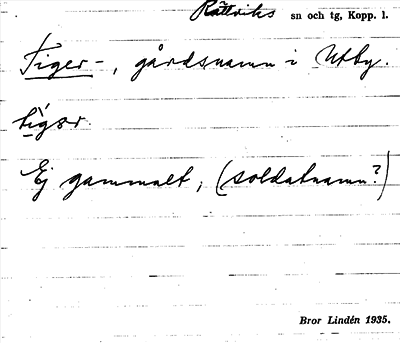 Rättviks sn och tg, Kopp. l.
Tiger-, gårdsnamn i Utby.
tígər
Ej gammalt, (soldatnamn?)
Bror Lindén 1935.